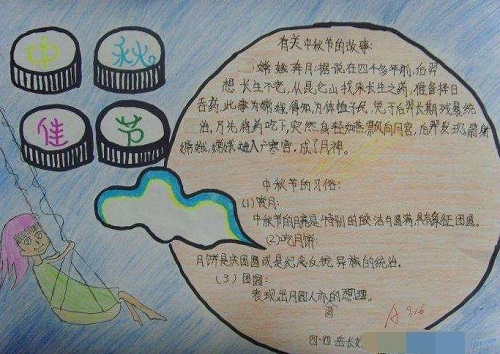 中秋
佳节
有关中秋节的故事:
嫦娥奔月:据说在四千多年前,后羿
想长生不老,从昆仑山找来长生之药,准备择日
吞药,此事为嫦娥得知,为体恤子民,免于后羿长期残暴统
治,乃先将药吃下,突然身轻如燕飘向月宫,后羿
嫦娥,嫦娥进入广寒宫,成了月神。
中秋节的习俗:
(1)赏月:
中秋节的月亮是特别的皎洁与圆满,具有象征团圆。
(2)吃月饼
月饼是庆团圆或是纪念反抗异族的统治。
(3)团圆:
表现出月圆人亦圆的想理。
A 9.16
四·四 岳长